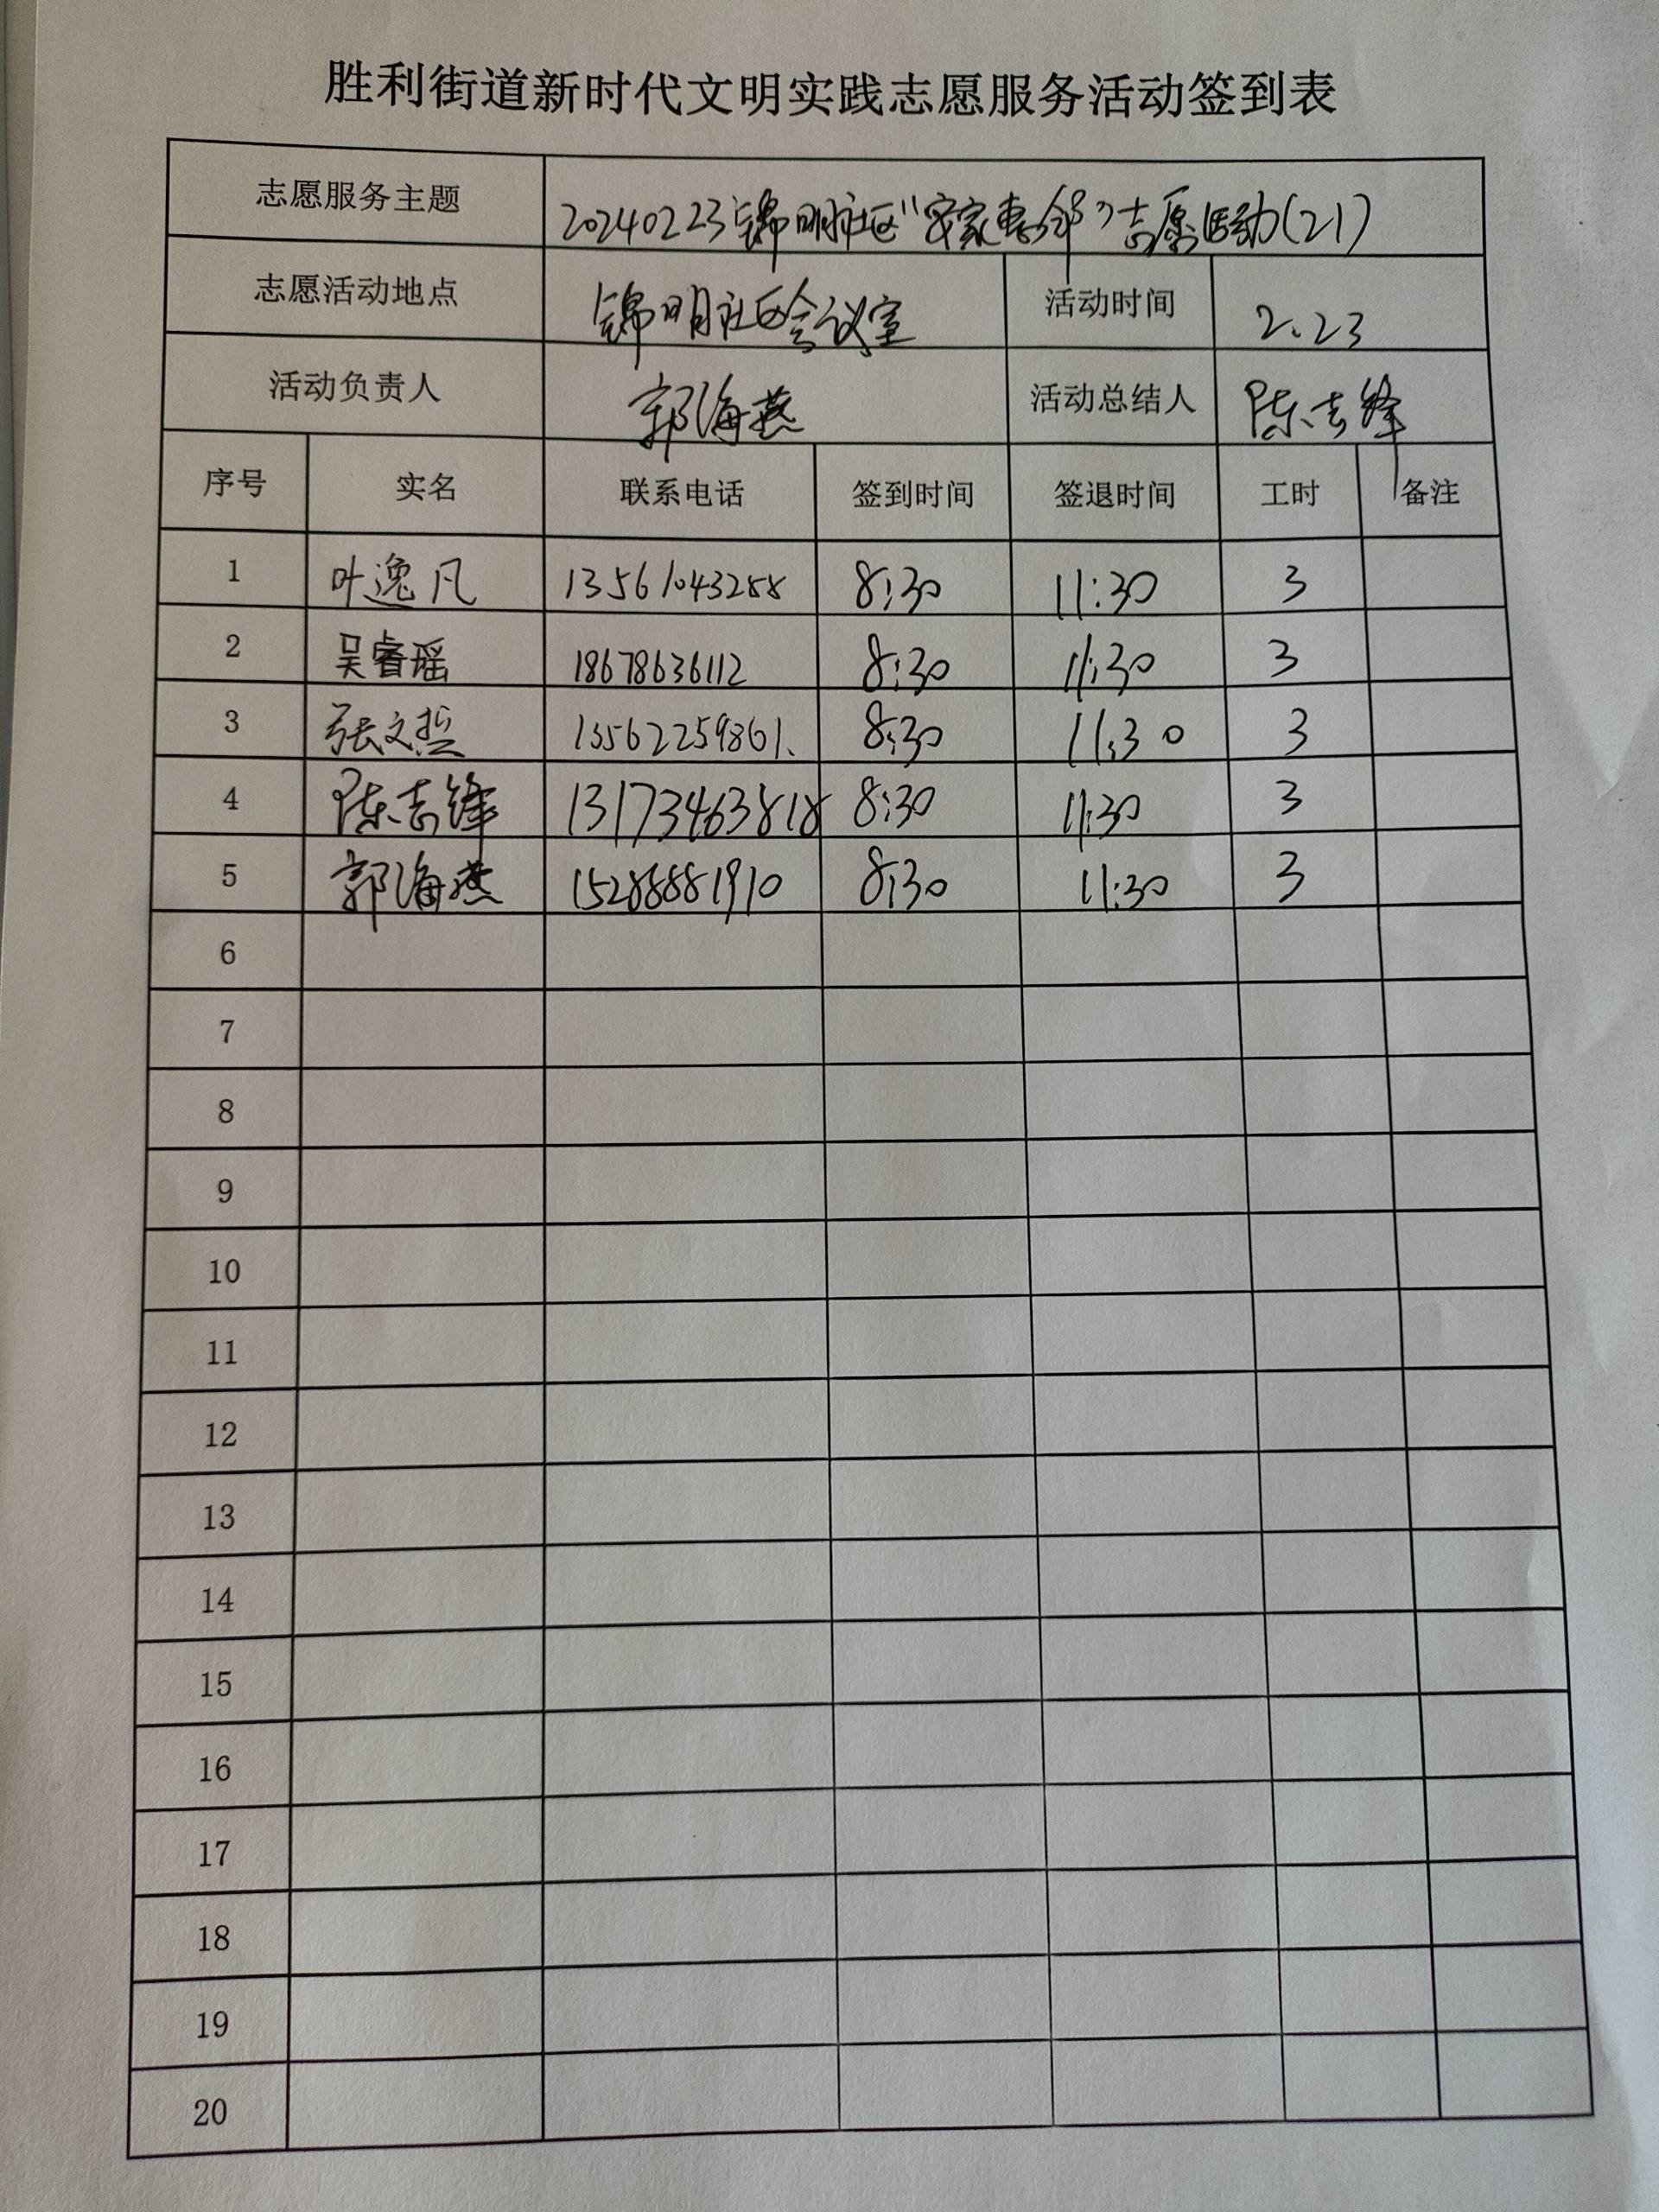 胜利街道新时代文明实践志愿服务活动签到表
志愿服务主题 20240223锦明社区“安家惠邻”志愿活动(21)
志愿活动地点 锦明社区会议室 活动时间 2.23
活动负责人 郭海燕 活动总结人 陈志锋
序号 实名 联系电话 签到时间 签退时间 工时 备注
1 叶逸凡 13561043288 8:30 11:30 3
2 吴睿瑶 18678636112 8:30 11:30 3
3 张文哲 13562259861. 8:30 11:30 3
4 陈志锋 13173463818 8:30 11:30 3
5 郭海燕 15288881910 8:30 11:30 3
6
7
8
9
10
11
12
13
14
15
16
17
18
19
20